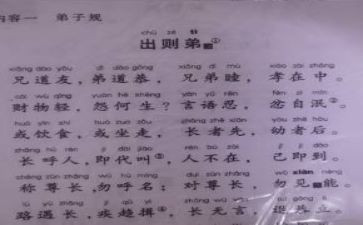 内容一 弟子规
chū zé tì
出则弟①
xiōng dào yǒu dì dào gōng xiōng dì mù xiào zài zhōng
兄道友，弟道恭，兄弟睦，孝在中。
cái wù qīng yuàn hé shēng yán yǔ rěn fèn zì mǐn
财物轻，怨何生？言语忍，忿自泯②。
huò yǐn shí huò zuò zǒu zhǎng zhě xiān yòu zhě hòu
或饮食，或坐走，长者先，幼者后。
zhǎng hū rén jí dài jiào rén bú zài jǐ jí dào
长呼人，即代叫③，人不在，己即到。
chēng zūn zhǎng wù hū míng duì zūn zhǎng wù xiàn néng
称尊长，勿呼名；对尊长，勿见能。
lù yù zhǎng jí qū yī zhǎng wú yán tuì gōng lì
路遇长，疾趋揖，长无言，退恭立。